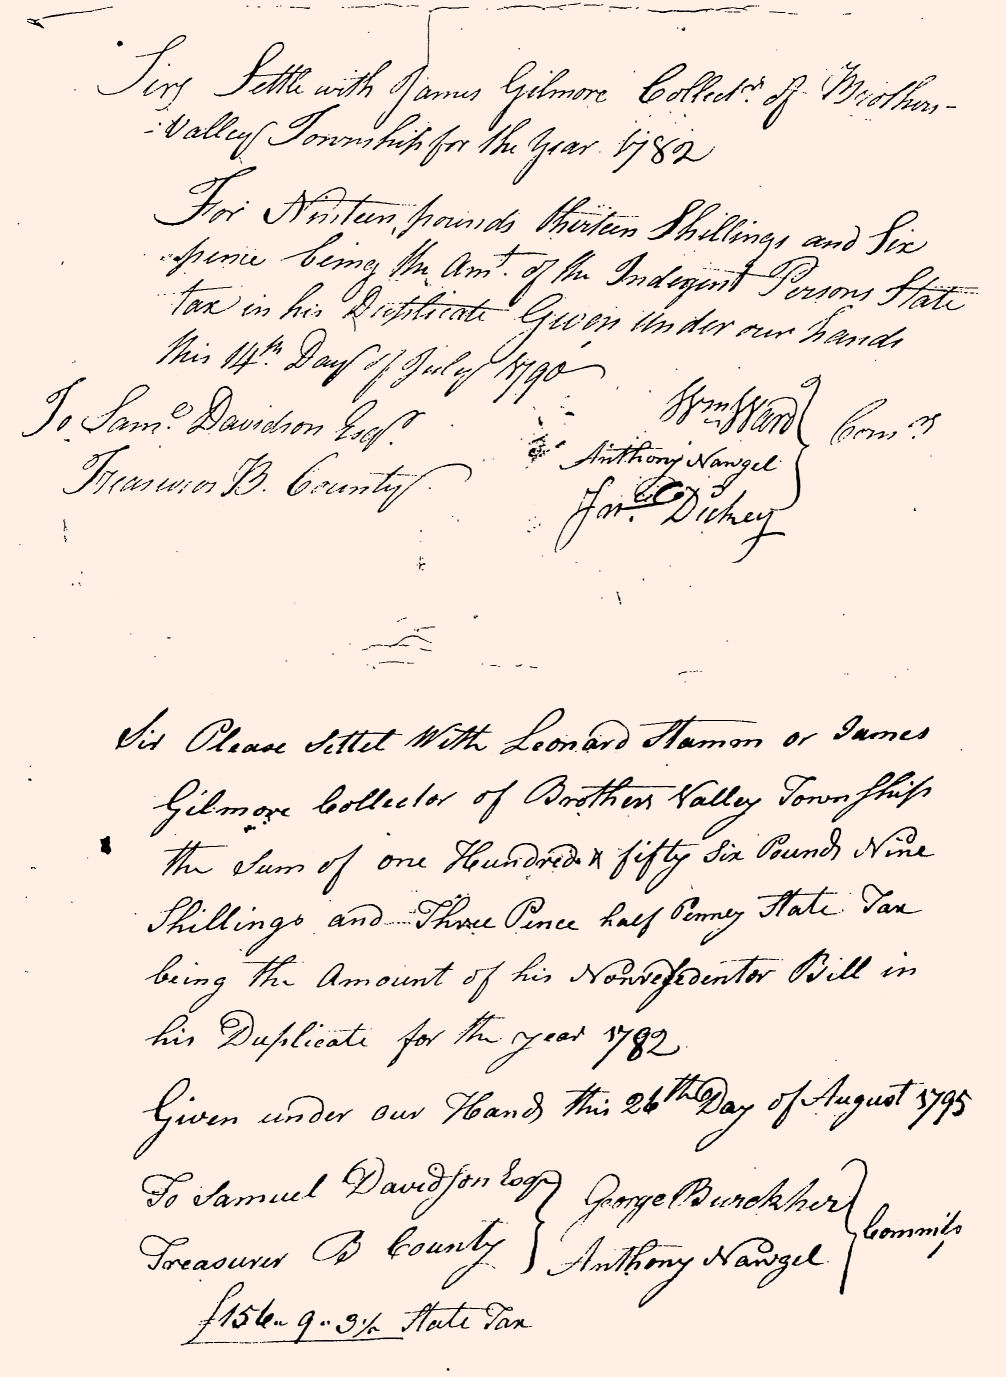 Sirs Settle with James Gilmore Collectr. of Brothers-
Valley Township for the Year 1782
For Ninteen pounds thirteen Shillings and Six
pence being the Amt. of the Indegent Persons State
tax in his Duplicate Given under our hands
this 14th Day of July 1790
To Saml. Davidson Esqr.
Treasurer B. County
Wm Ward
Anthony Nawgel
Jno. Dickey
Comrs
Sir Please Settel With Leonard Stamm or James
Gilmore Collector of Brothers Valley Township
the Sum of one Hundred & fifty Six Pounds Nine
Shillings and Three Pence half Penney State Tax
being the Amount of his Nonresedentor Bill in
his Duplicate for the year 1782
Given under our Hands this 26th Day of August 1795
To Samuel Davidson Esqr
Treasurer B County
George Burckher
Anthony Nawgel
Commiss
£156 - 9 - 3½ State Tax